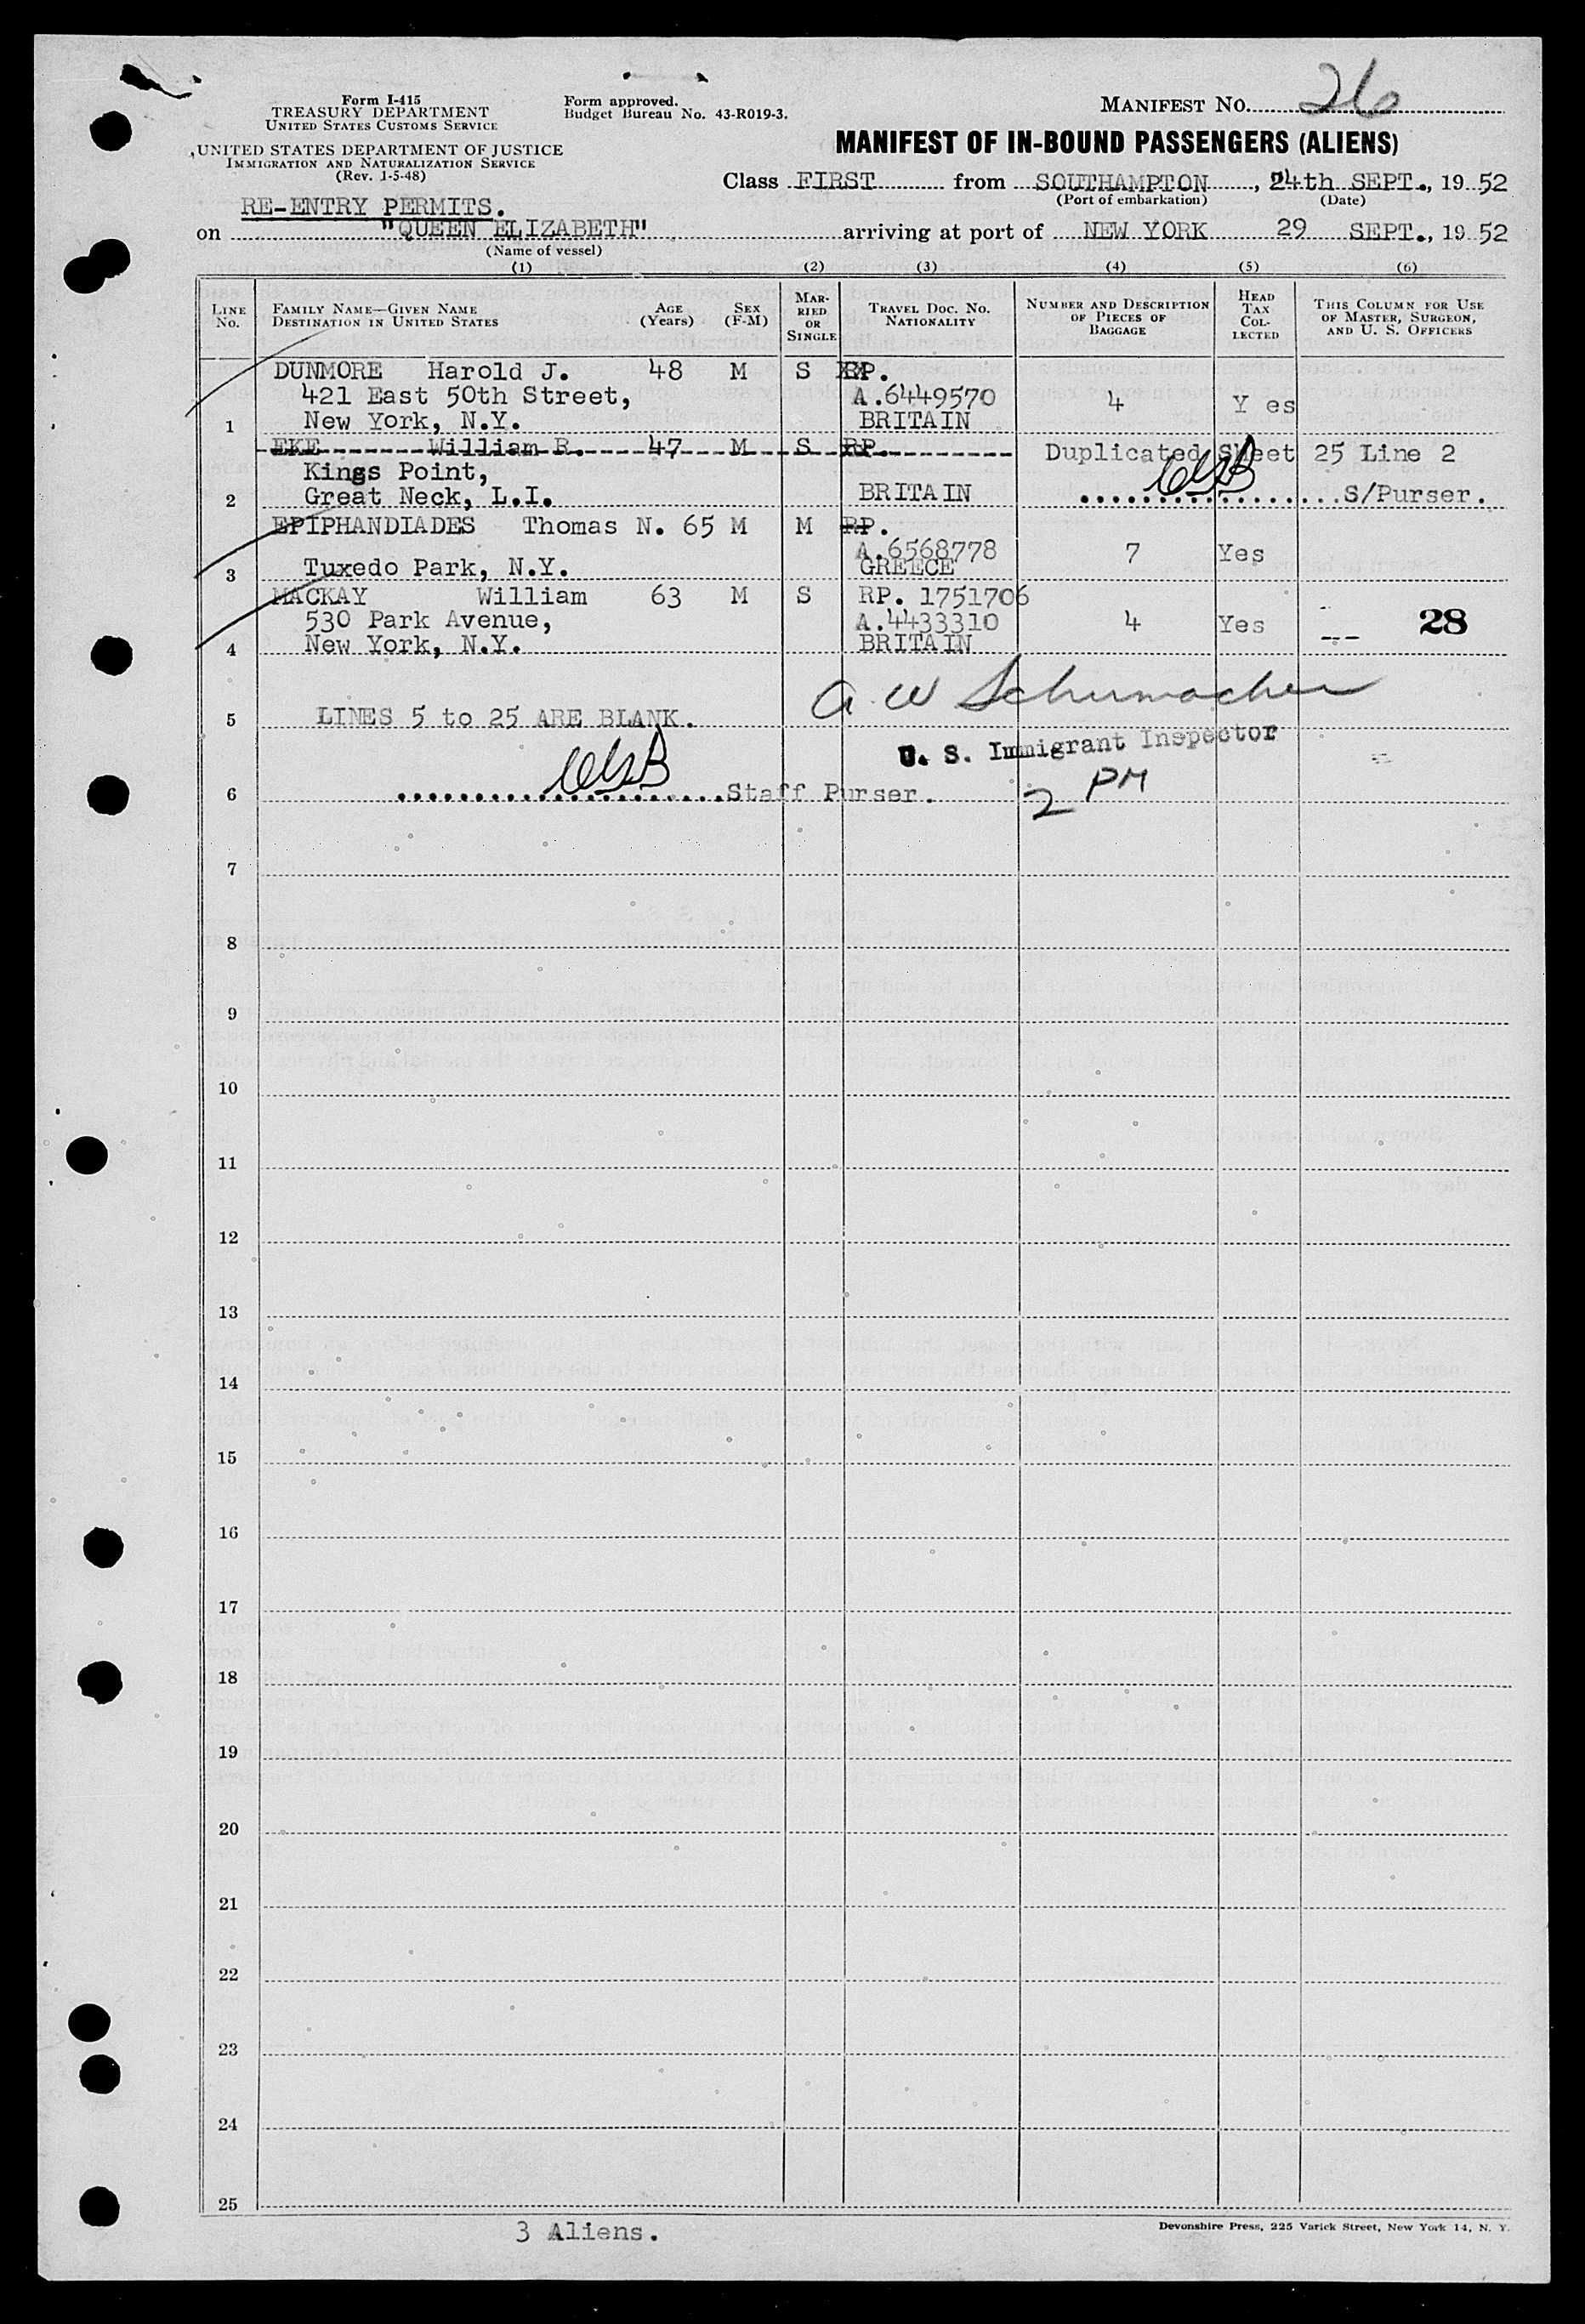 Form I-415
TREASURY DEPARTMENT
UNITED STATES CUSTOMS SERVICE
UNITED STATES DEPARTMENT OF JUSTICE
IMMIGRATION AND NATURALIZATION SERVICE
(Rev. 1-5-48)
Form approved.
Budget Bureau No. 43-R019-3.
MANIFEST NO. 26
MANIFEST OF IN-BOUND PASSENGERS (ALIENS)
Class FIRST from SOUTHAMPTON, 24th SEPT., 1952
(Port of embarkation) (Date)
RE-ENTRY PERMITS.
on "QUEEN ELIZABETH" arriving at port of NEW YORK 29 SEPT., 1952
(Name of vessel)
(1) (2) (3) (4) (5) (6)
LINE No. FAMILY NAME—GIVEN NAME DESTINATION IN UNITED STATES AGE (Years) SEX (F-M) MARRIED OR SINGLE TRAVEL DOC. NO. NATIONALITY NUMBER AND DESCRIPTION OF PIECES OF BAGGAGE HEAD TAX COLLECTED THIS COLUMN FOR USE OF MASTER, SURGEON, AND U. S. OFFICERS
DUNMORE Harold J. 48 M S RP.
421 East 50th Street, A.6449570 4 Yes
1 New York, N.Y. BRITAIN
EKE William R. 47 M S RP. Duplicated Sheet 25 Line 2
Kings Point,
2 Great Neck, L.I. BRITAIN S/Purser.
EPIPHANDIADES Thomas N. 65 M M RP.
A.6568778 7 Yes
3 Tuxedo Park, N.Y. GREECE
MACKAY William 63 M S RP. 1751706
530 Park Avenue, A.4433310 4 Yes 28
4 New York, N.Y. BRITAIN
A W Schumacher
5 LINES 5 to 25 ARE BLANK.
U. S. Immigrant Inspector
2 PM
6 Staff Purser.
7
8
9
10
11
12
13
14
15
16
17
18
19
20
21
22
23
24
25
3 Aliens.
Devonshire Press, 225 Varick Street, New York 14, N. Y.